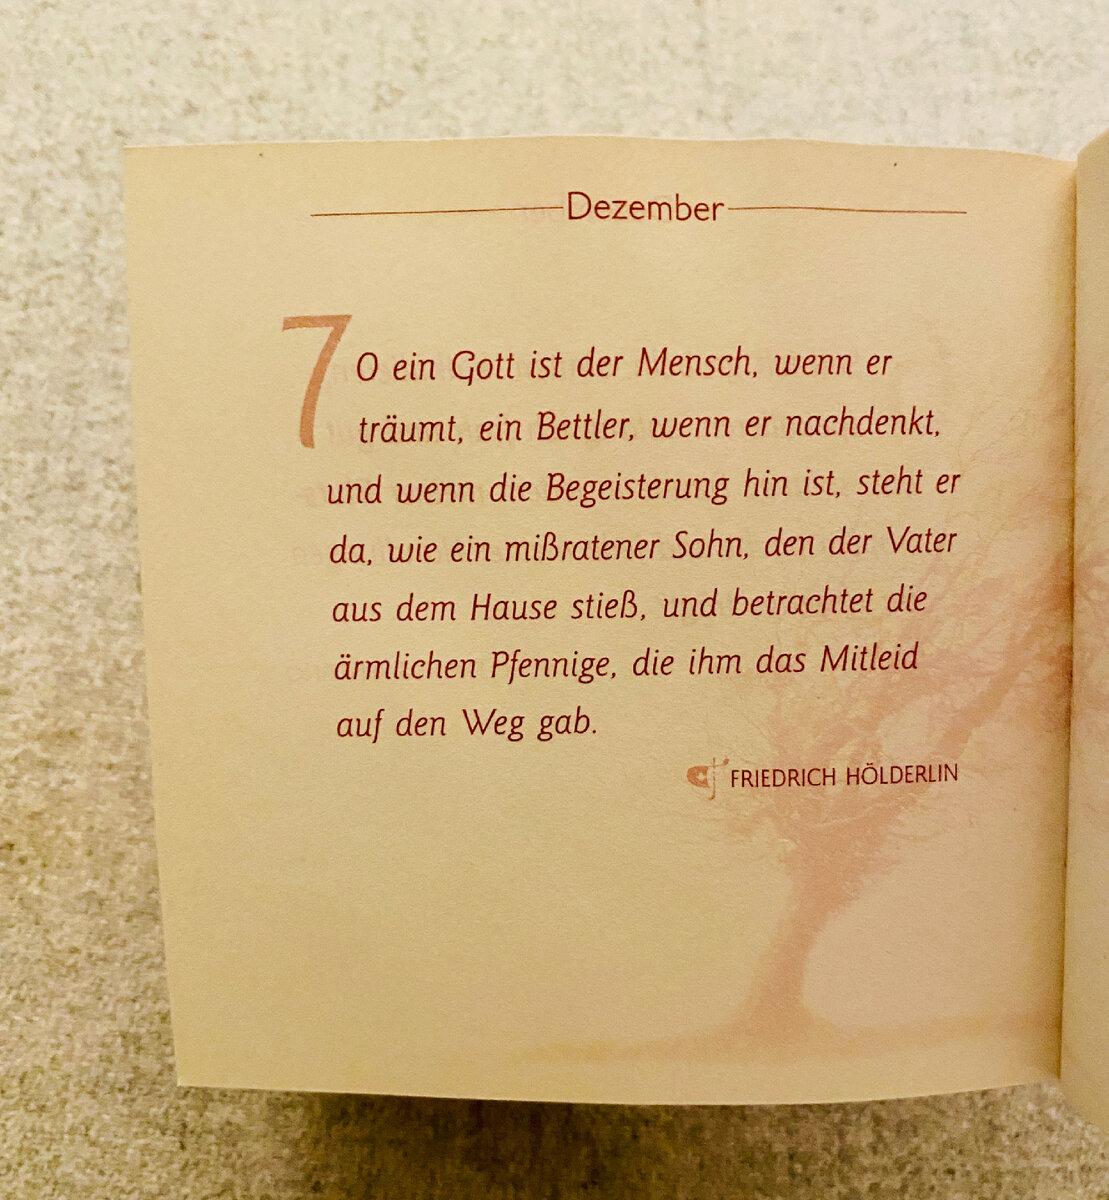 Dezember
7
O ein Gott ist der Mensch, wenn er
träumt, ein Bettler, wenn er nachdenkt,
und wenn die Begeisterung hin ist, steht er
da, wie ein mißratener Sohn, den der Vater
aus dem Hause stieß, und betrachtet die
ärmlichen Pfennige, die ihm das Mitleid
auf den Weg gab.
FRIEDRICH HÖLDERLIN